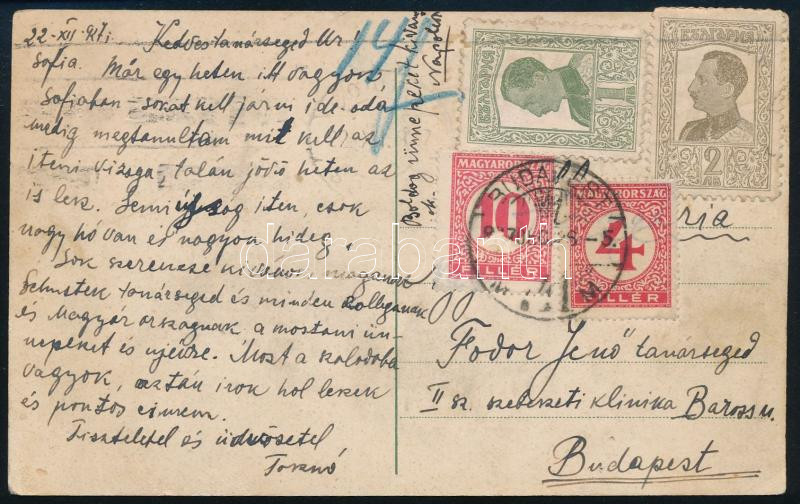 22-XII 927.
Sofia.
Kedves tanársegéd Ur!
Már egy heten itt vagyok
Sofiaban - sokat kell járni ide-oda
mig megtanultam mit kell az
iteni vizsga. talán jövö heten az
is lesz. Semi ujsag iten, csok
nagy hó van es nagyon hideg.
Sok szerencse kivanok, maganak
tanársegéd és minden
és Magyarorszagnak a mostani ün-
nepeket és ujevre. Most a
vagyok, aztán irok hol leszek
és pontos cimem.
Tisztelettel és üdvözletel
Boldog ünnepeket kivan
БЪЛГАРИЯ
1
БЪЛГАРИЯ
2 ЛВ
MAGYARORSZÁG
10
FILLÉR
MAGYARORSZÁG
4
FILLÉR
BUDAPEST
Fodor Jenö tanársegéd
II sz. szebeszeti klinika Baross u.
Budapest
darabanth